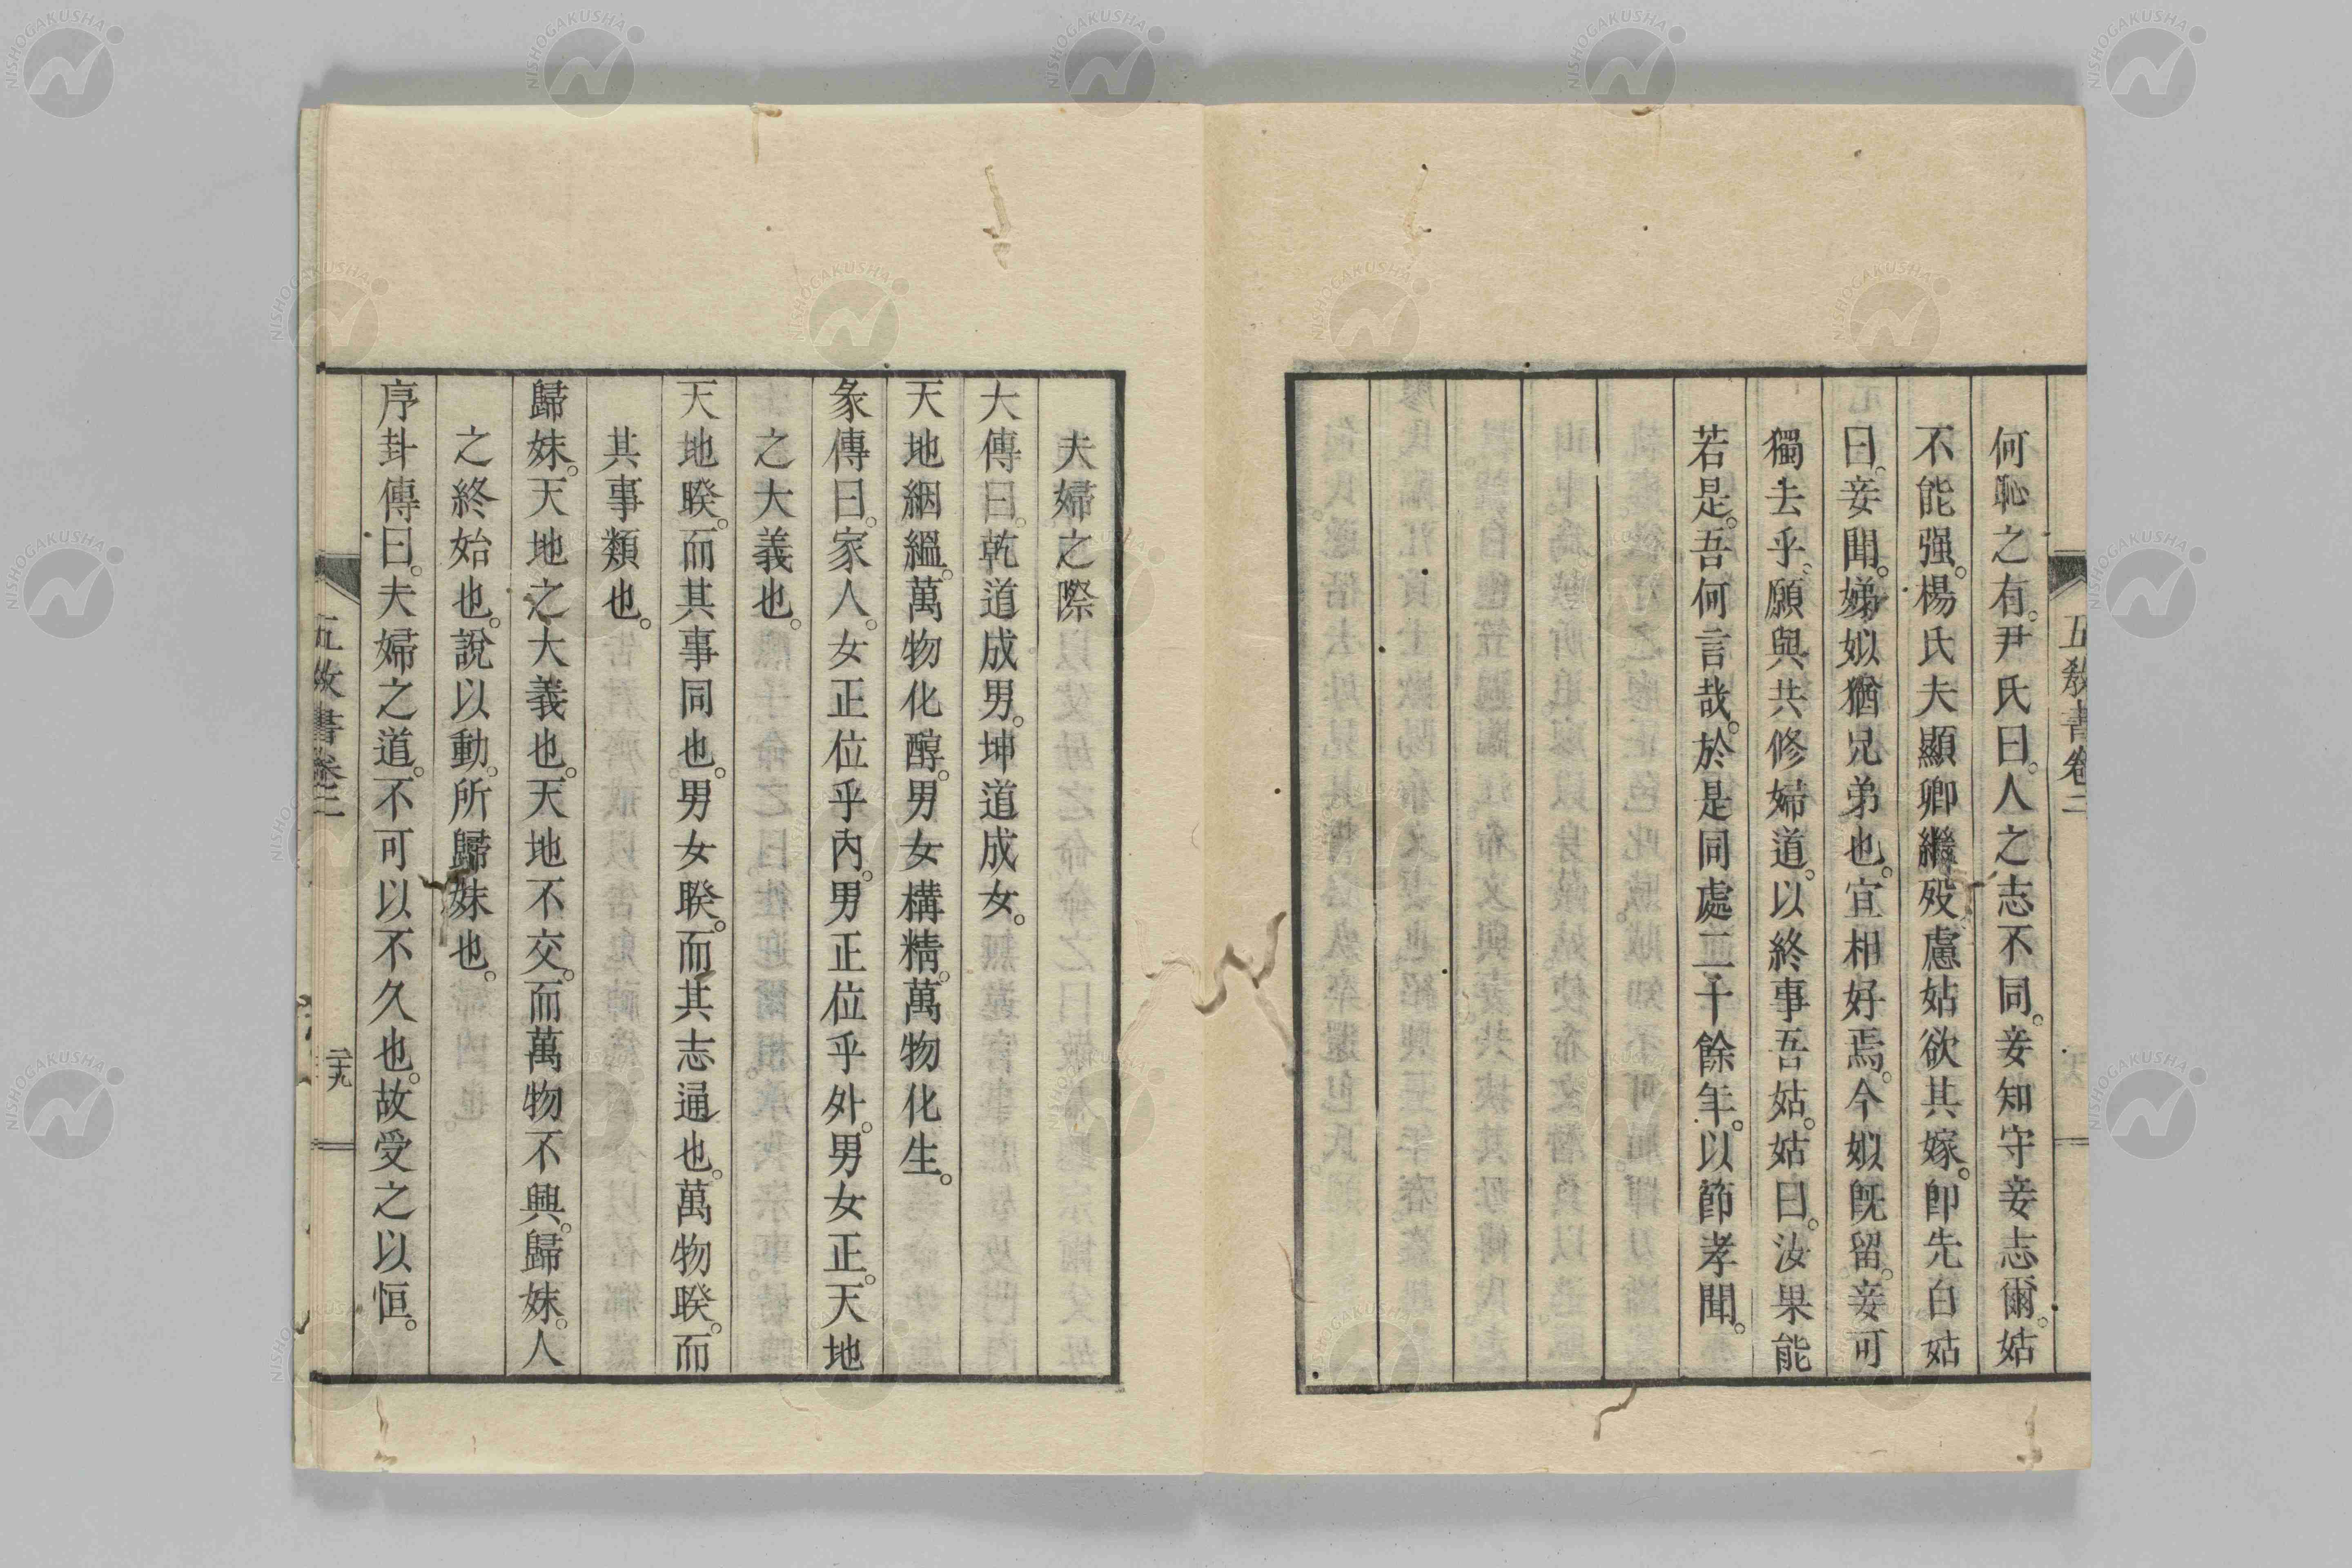 五教書卷二
何恥之有。尹氏曰。人之志不同。妾知守妾志爾。姑
不能强。楊氏夫顯卿繼歿慮姑欲其嫁。卽先白姑
曰。妾聞。娣姒猶兄弟也。宜相好焉。今姒旣留。妾可
獨去乎。願與共修婦道。以終事吾姑。姑曰。汝果能
若是。吾何言哉。於是同處二十餘年。以節孝聞。
夫婦之際
大傳曰。乾道成男。坤道成女。
天地絪縕。萬物化醇。男女構精。萬物化生。
彖傳曰。家人。女正位乎內。男正位乎外。男女正。天地
之大義也。
天地睽。而其事同也。男女睽。而其志通也。萬物睽。而
其事類也。
歸妹。天地之大義也。天地不交。而萬物不興。歸妹。人
之終始也。說以動。所歸妹也。
序卦傳曰。夫婦之道。不可以不久也。故受之以恒。
五教書卷二
二十九
NISHOGAKUSHA